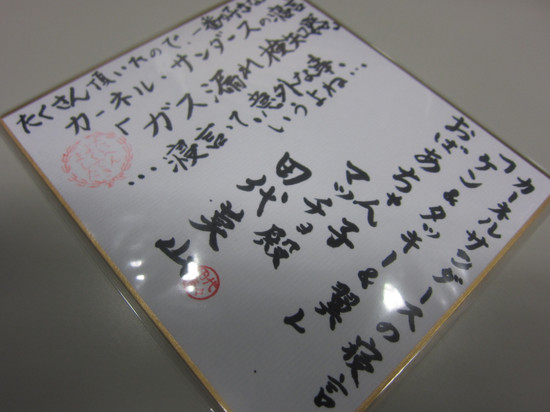 たくさん頂いたので、一番好きな
カーネル・サンダースの寝言
「ガス漏れ検知器」
…寝言って意外な事、
いうよね…
カーネルサンダースの寝言
「ケン&タッキー&翼」
おばあちゃん子
マッチョ
田代殿